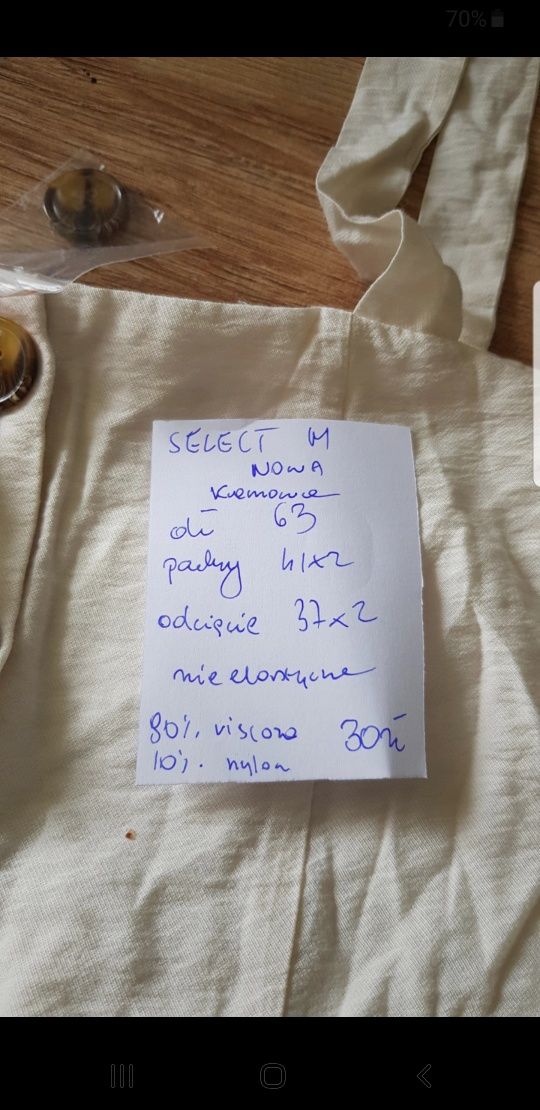 70%
SELECT M
NOWA
kremowa
dł 63
pachy 41x2
odcięcie 37x2
nieelastyczne
90%. viscoza 30zł
10%. nylon